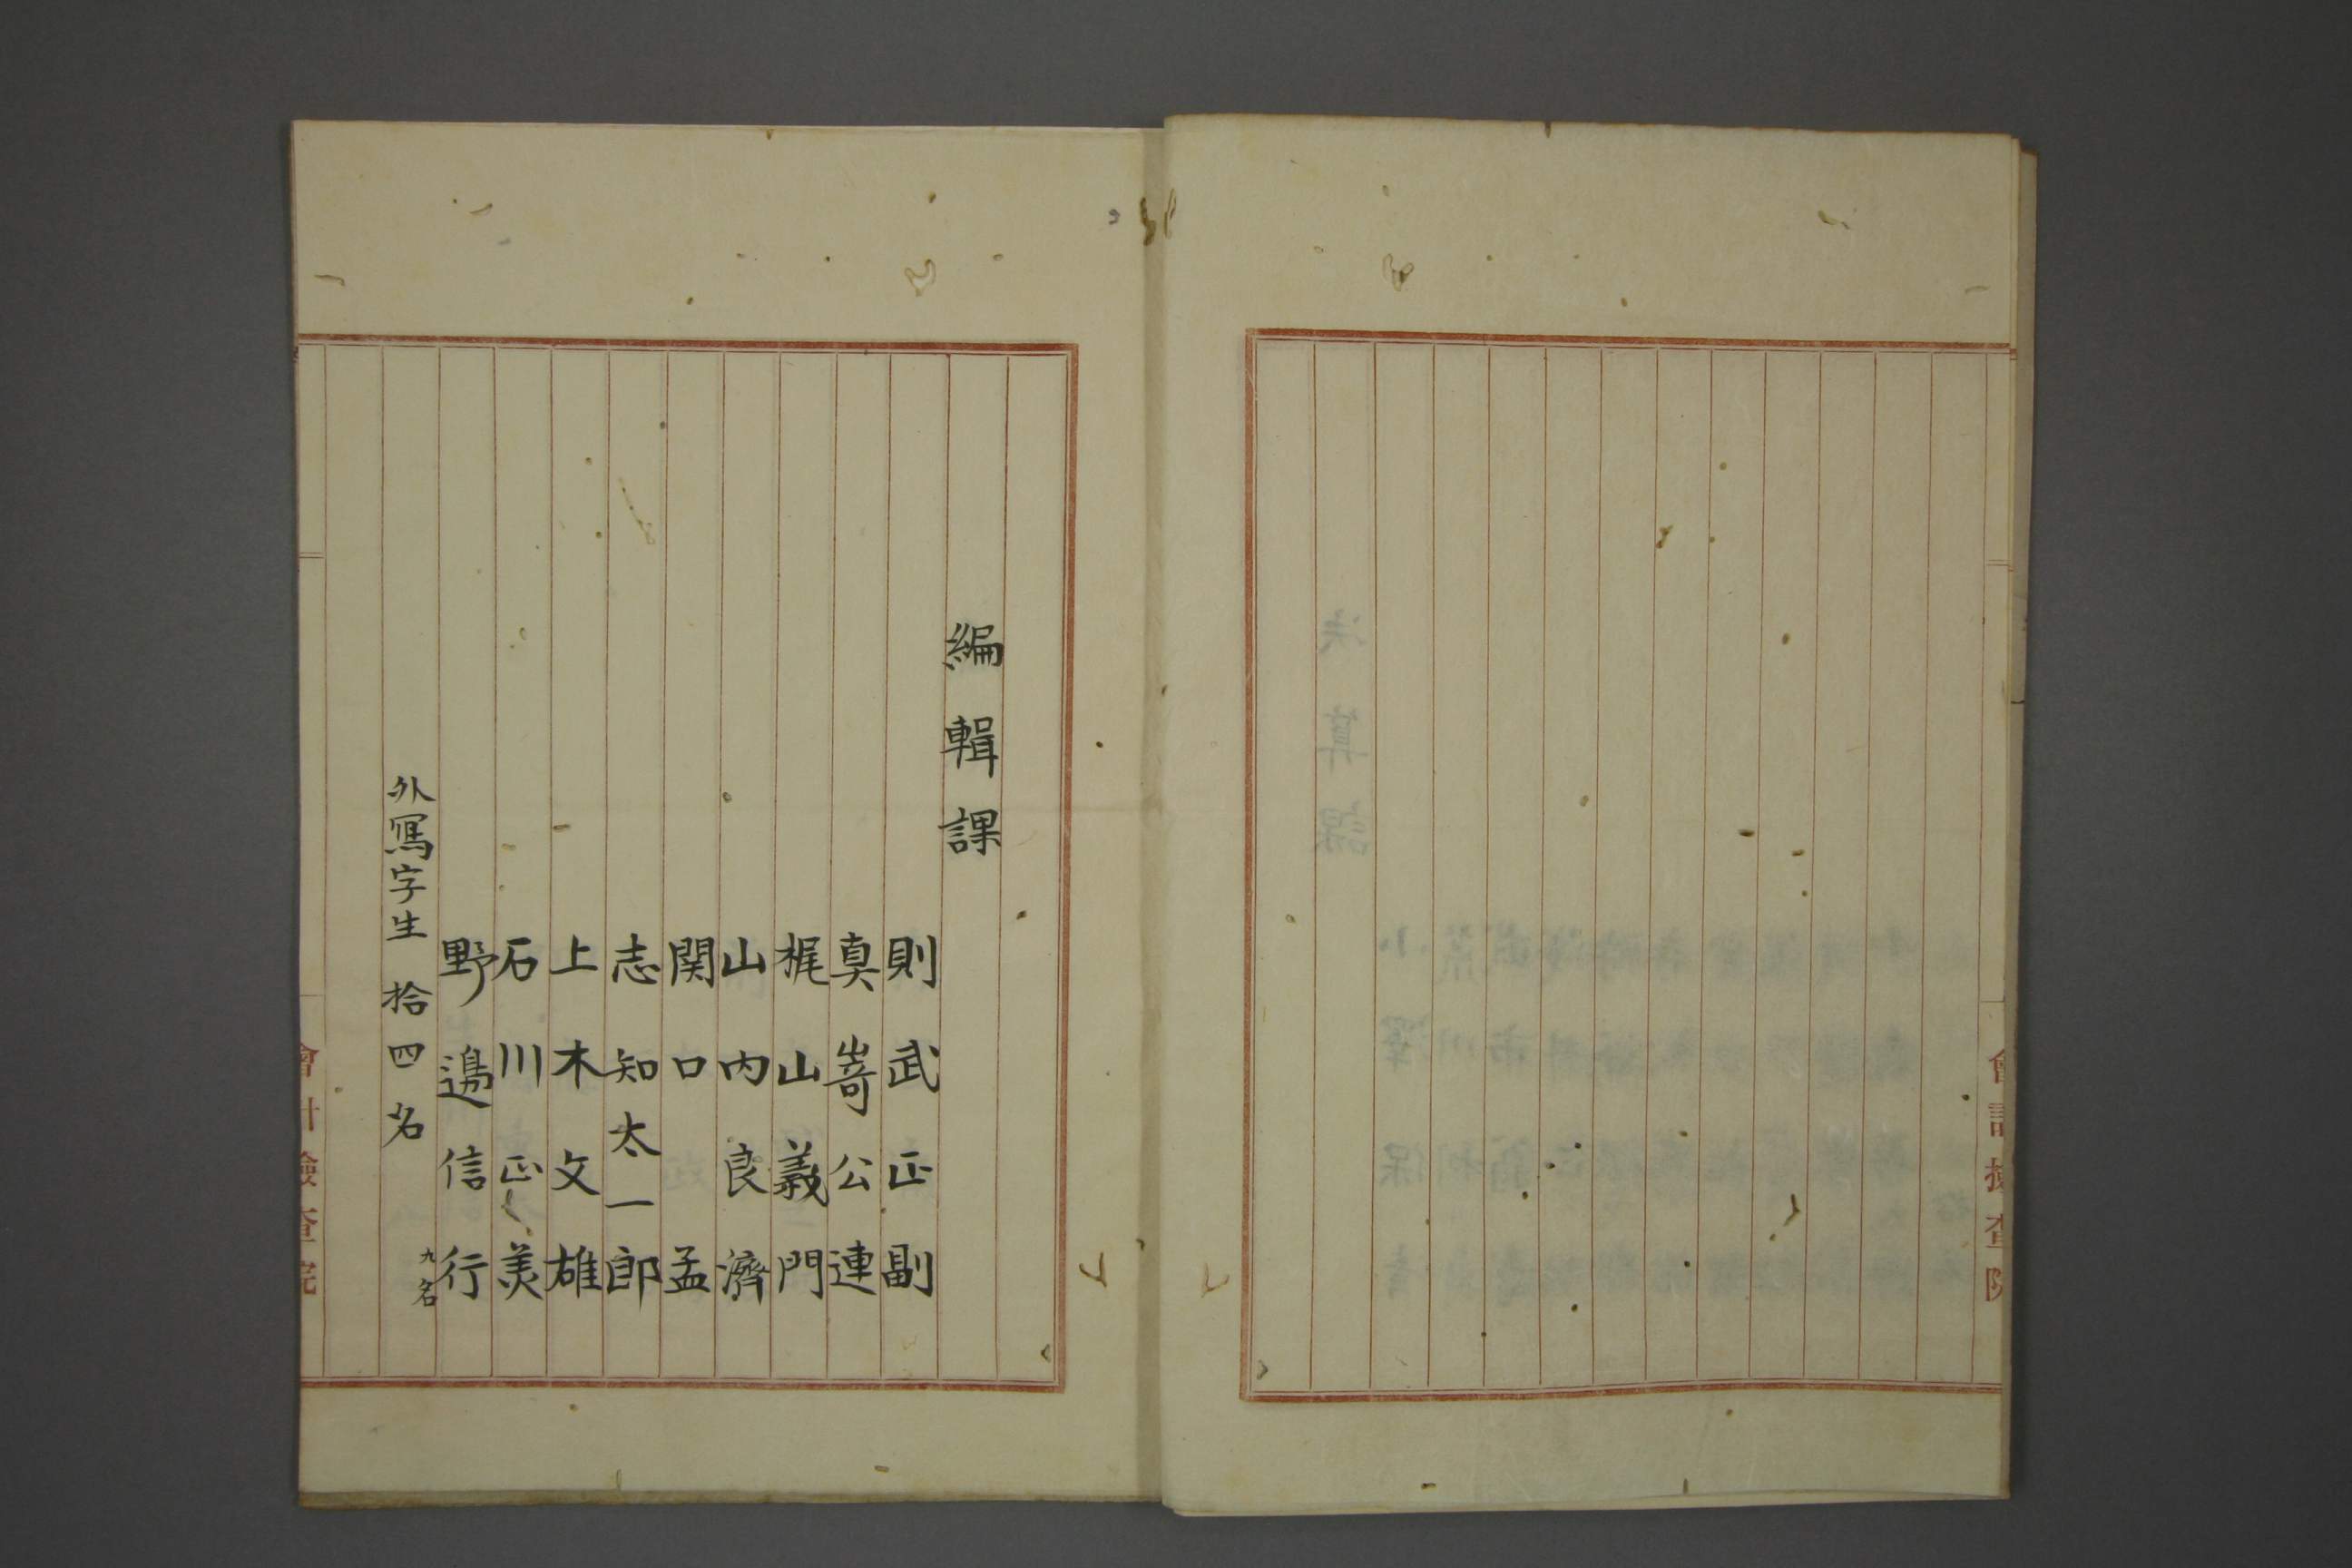 會計検査院
編輯課
則武正副
真嵜公連
梶山義門
山内良濟
関口孟
志知太一郎
上木文雄
石川正美
野邉信行
九名
外寫字生 拾四名
會計檢查院